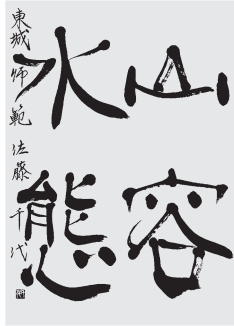 山容
水態
東城師範 佐藤千代